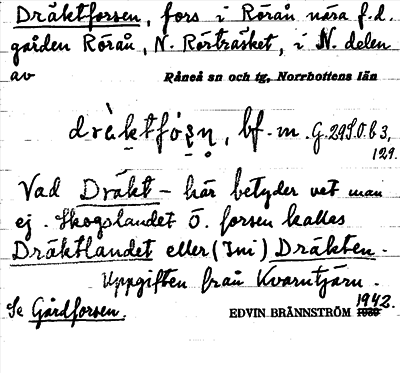 Dräktforsen, fors i Rörån nära f.d.
gården Rörån, N. Rörträsket, i N. delen
av Råneå sn och tg, Norrbottens län
bf. m. G. 2980 b 3,
129.
Vad Dräkt- här betyder vet man
ej. Skogslandet Ö. forsen kallas
Dräktlandet eller (Ini) Dräkten.
Uppgiften från Kvarntjärn.
Se Gårdforsen. EDVIN BRÄNNSTRÖM 1942.